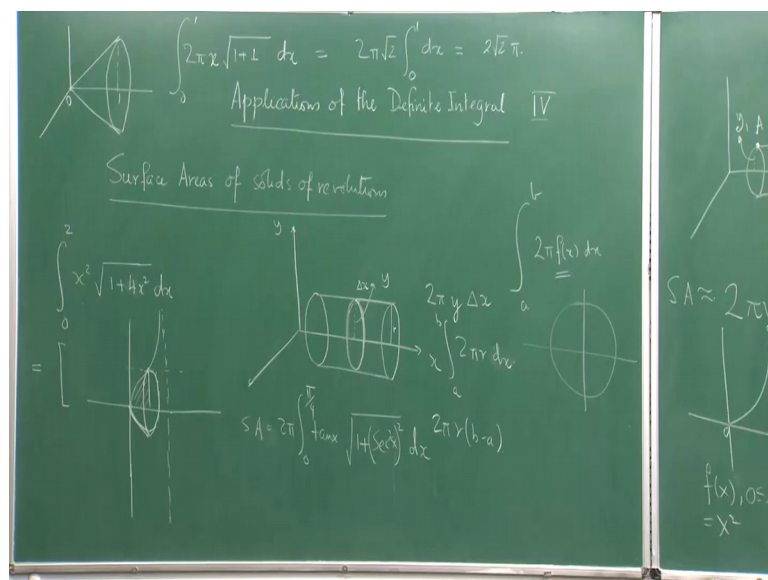 ∫₀¹ 2πx √(1+1) dx = 2π√2 ∫₀¹ dx = 2√2 π.
Applications of the Definite Integral IV
Surface Areas of solids of revolution
∫₀² x² √(1+4x²) dx
= [
y
Δx y
x
0
2π y Δx
∫ₐᵇ 2πr dx
2πr(b-a)
∫ₐᵇ 2πf(x) dx
SA = 2π ∫₀^(π/4) tanx √(1+(Sec²x)²) dx
y₁ A
SA ≈ 2π
f(x), 0≤
= x²